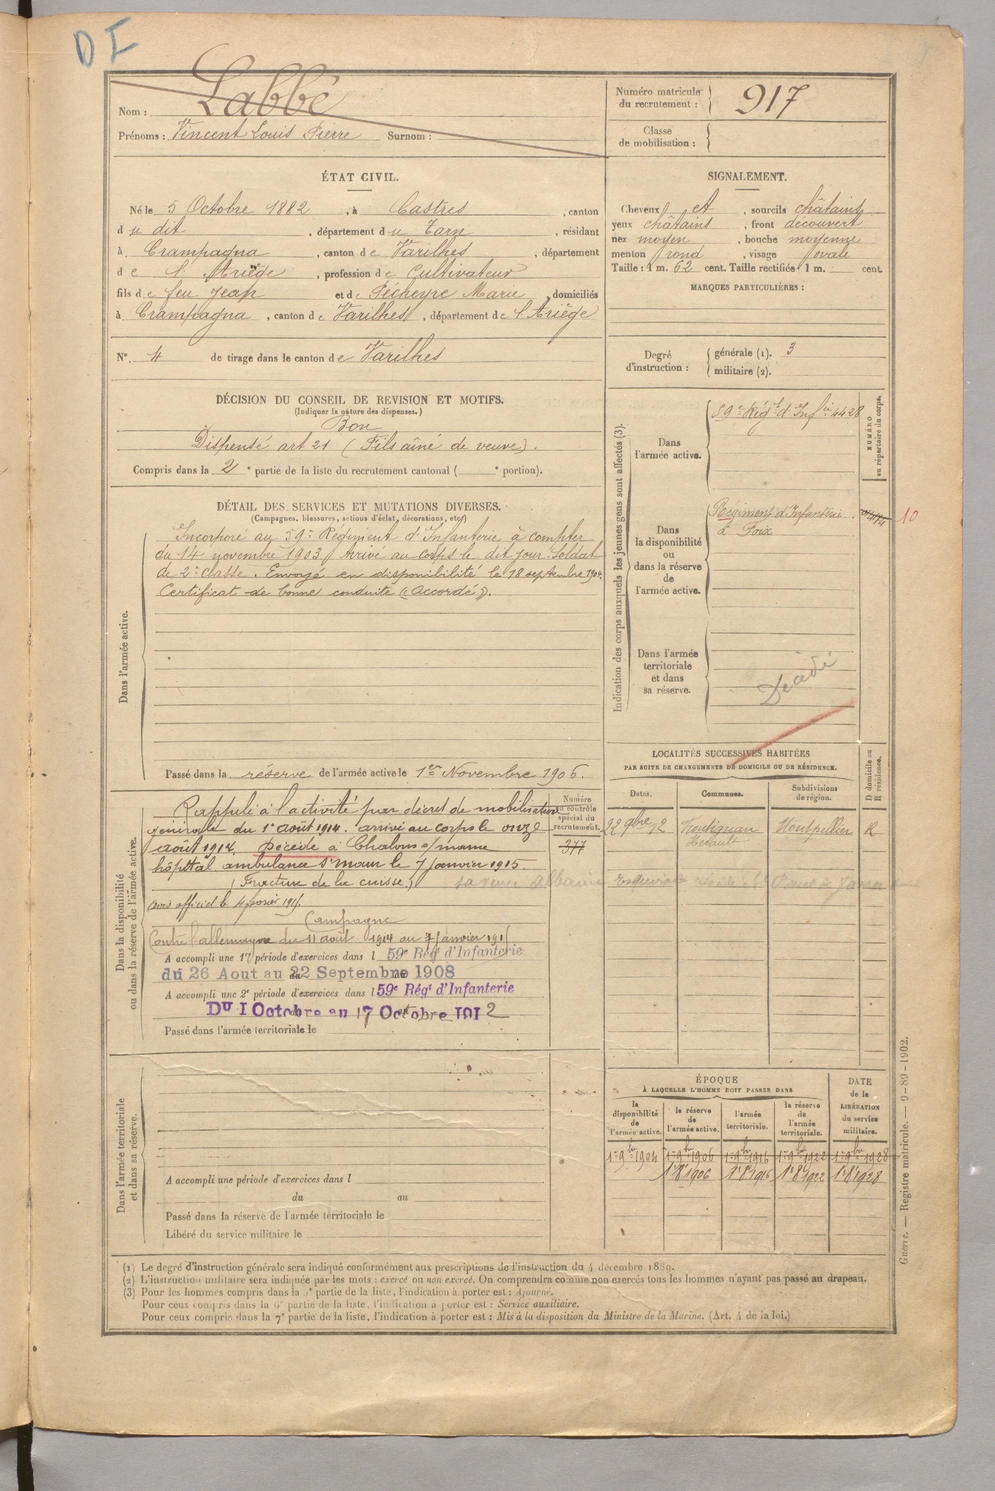 DF
Nom : Labbé
Prénoms : Vincent Louis Pierre Surnom :
Numéro matricule du recrutement : 917
Classe de mobilisation :
ÉTAT CIVIL.
Né le 5 Octobre 1882, à Castres, canton
du dit, département du Tarn, résidant
à Crampagna, canton de Varilhes, département
de l'Ariège, profession de Cultivateur
fils de feu Jean et de Pécheyre Marie, domiciliés
à Crampagna, canton de Varilhes, département de l'Ariège
N°. 4 de tirage dans le canton de Varilhes
SIGNALEMENT.
Cheveux et, sourcils châtains
yeux châtains, front découvert
nez moyen, bouche moyenne
menton rond, visage ovale
Taille : 1 m. 62 cent. Taille rectifiée : 1 m. cent.
MARQUES PARTICULIÈRES :
Degré d'instruction : générale (1). 3
militaire (2).
DÉCISION DU CONSEIL DE REVISION ET MOTIFS.
(Indiquer la nature des dispenses.)
Bon
Dispensé art 21 (Fils aîné de veuve).
Compris dans la 2e partie de la liste du recrutement cantonal ( e portion).
DÉTAIL DES SERVICES ET MUTATIONS DIVERSES.
(Campagnes, blessures, actions d'éclat, décorations, etc.)
Dans l'armée active.
Incorporé au 59e Régiment d'Infanterie à compter
du 14 novembre 1903. Arrivé au corps le dit jour. Soldat
de 2e classe. Envoyé en disponibilité le 18 septembre 1904.
Certificat de bonne conduite "Accordé".
Passé dans la réserve de l'armée active le 1er Novembre 1906.
Dans la disponibilité ou dans la réserve de l'armée active.
Numéro au contrôle spécial du recrutement.
377
Rappelé à l'activité par décret de mobilisation
générale du 1er août 1914. arrivé au corps le onze
août 1914. Décédé à Chalons s/marne
hôpital ambulance St maur le 7 Janvier 1915
(Fracture de la cuisse)
avis officiel le
Campagne
Contre l'allemagne du 11 août 1914 au 7 Janvier 1915
A accompli une 1re période d'exercices dans l 59e Régt d'Infanterie
du 26 Aout au 22 Septembre 1908
A accompli une 2e période d'exercices dans l 59e Régt d'Infanterie
Du 1 Octobre au 17 Octobre 1912
Passé dans l'armée territoriale le
Dans l'armée territoriale et dans sa réserve.
A accompli une période d'exercices dans l
du au
Passé dans la réserve de l'armée territoriale le
Libéré du service militaire le
Indication des corps auxquels les jeunes gens sont affectés (3).
NUMÉRO au répertoire du corps.
Dans l'armée active.
59e Régt d'Infie 4428
Dans la disponibilité ou dans la réserve de l'armée active.
Régiment d'Infanterie
à Foix
10
Dans l'armée territoriale et dans sa réserve.
Décédé
LOCALITÉS SUCCESSIVES HABITÉES
PAR SUITE DE CHANGEMENTS DE DOMICILE OU DE RÉSIDENCE.
D domicile ou R résidence.
Dates. Communes. Subdivisions de région.
22 9bre 12 Montpellier R
Hérault
ÉPOQUE
À LAQUELLE L'HOMME DOIT PASSER DANS
la disponibilité de l'armée active. la réserve de l'armée active. l'armée territoriale. la réserve de l'armée territoriale. DATE de la LIBÉRATION du service militaire.
1er 9bre 1904 1er 9bre 1906 1er 9bre 1916 1er 9bre 1922 1er 9bre 1928
1er 8e 1906 1er 8e 1916 1er 8e 1922 1er 8e 1928
(1) Le degré d'instruction générale sera indiqué conformément aux prescriptions de l'instruction du 4 décembre 1889.
(2) L'instruction militaire sera indiquée par les mots : exercé ou non exercé. On comprendra comme non exercés tous les hommes n'ayant pas passé au drapeau.
(3) Pour les hommes compris dans la 5e partie de la liste, l'indication à porter est : Ajourné.
Pour ceux compris dans la 6e partie de la liste, l'indication à porter est : Service auxiliaire.
Pour ceux compris dans la 7e partie de la liste, l'indication à porter est : Mis à la disposition du Ministre de la Marine. (Art. 4 de la loi.)
Guerre. — Registre matricule. — 9-89-1902.